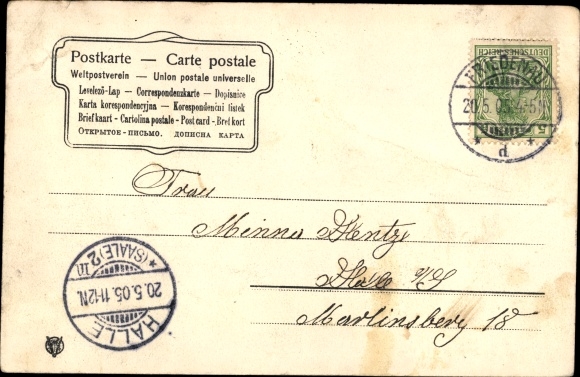 Postkarte — Carte postale
Weltpostverein — Union postale universelle
Levelező-Lap — Correspondenzkarte — Dopisnice
Karta korespondencyjna — Korespondenční lístek
Briefkaart - Cartolina postale - Post card - Bref kort
ОТКРЫТОЕ-ПИСЬМО. ДОПИСНА КАРТА
DEUTSCHES REICH
5
FRIEDENAU
20.5.05. 4-5N
* d *
Frau
Minna Hentze
Halle a/S
Martinsberg 18
HALLE
20.5.05. 11-12N.
* (SAALE) 2